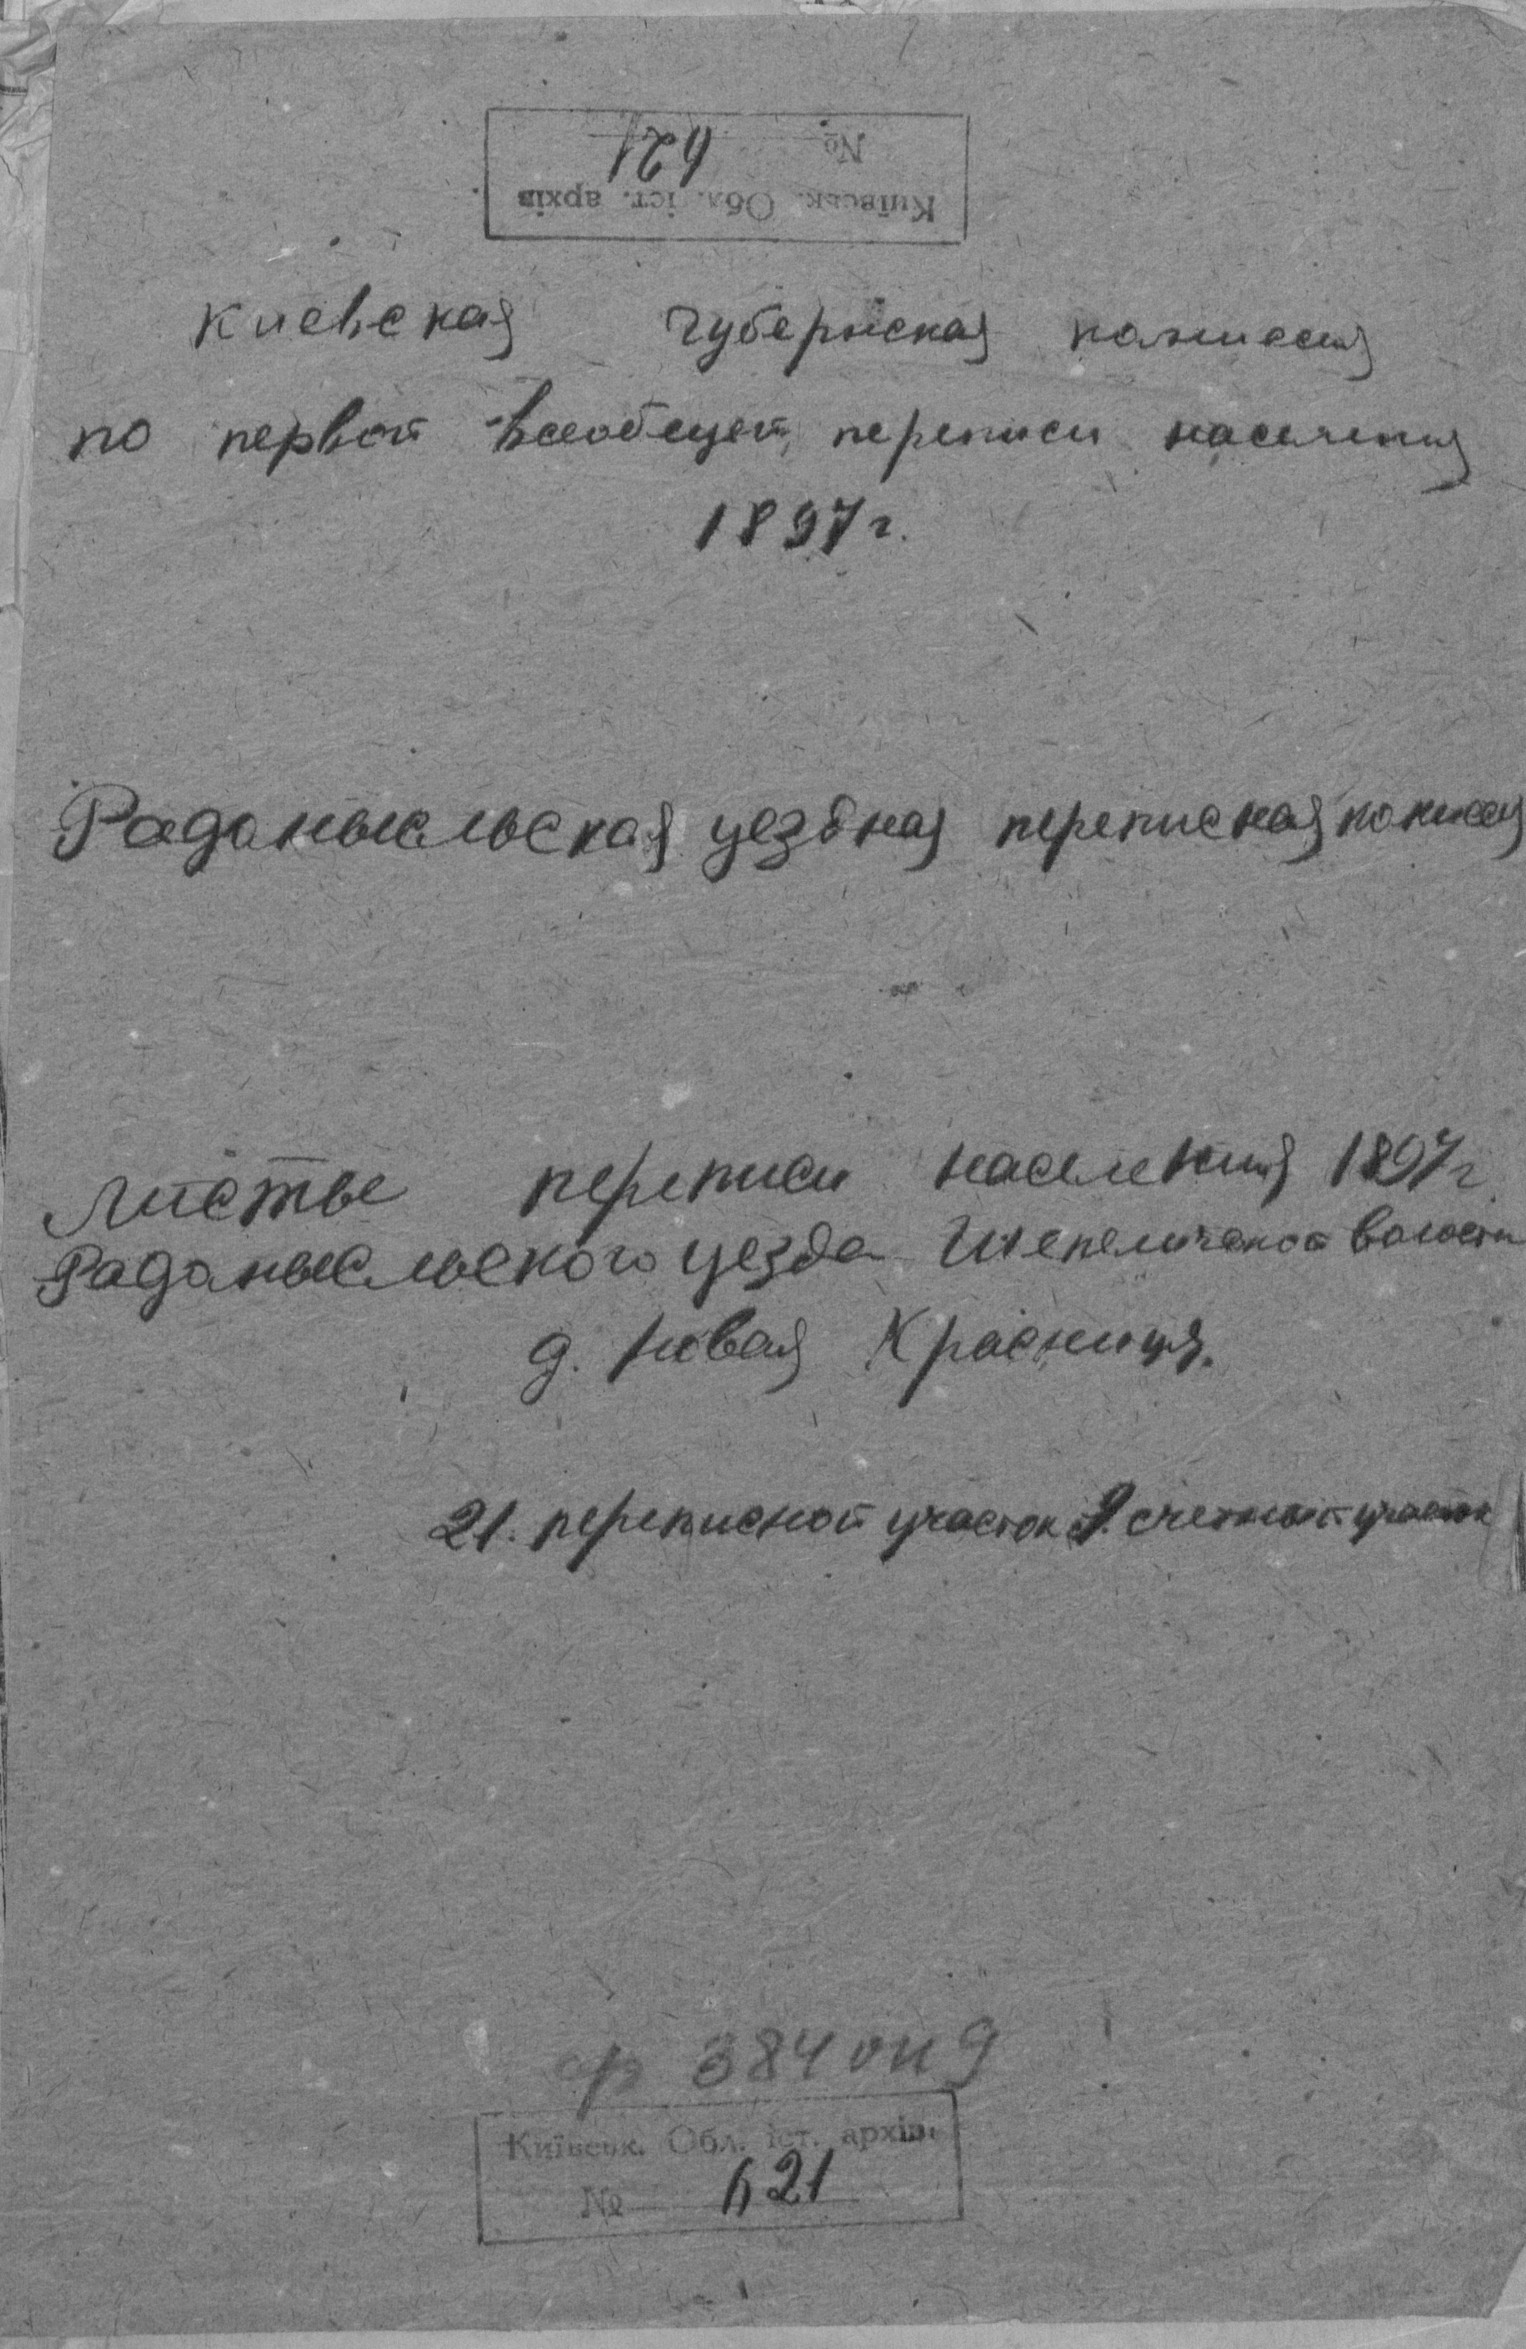 № 621
Київськ. Обл. іст. архів
Киевская Губернская комиссия
по первой всеобщей переписи населения
1897 г.
Радомысльская уездная переписная комиссия
Листы переписи населения 1897 г.
Радомысльского уезда Шепеличской волости
д. Новая Красница.
21. переписной участок 9. счетный участок
ф 384 оп 9
Київськ. Обл. іст. архів
№ 621